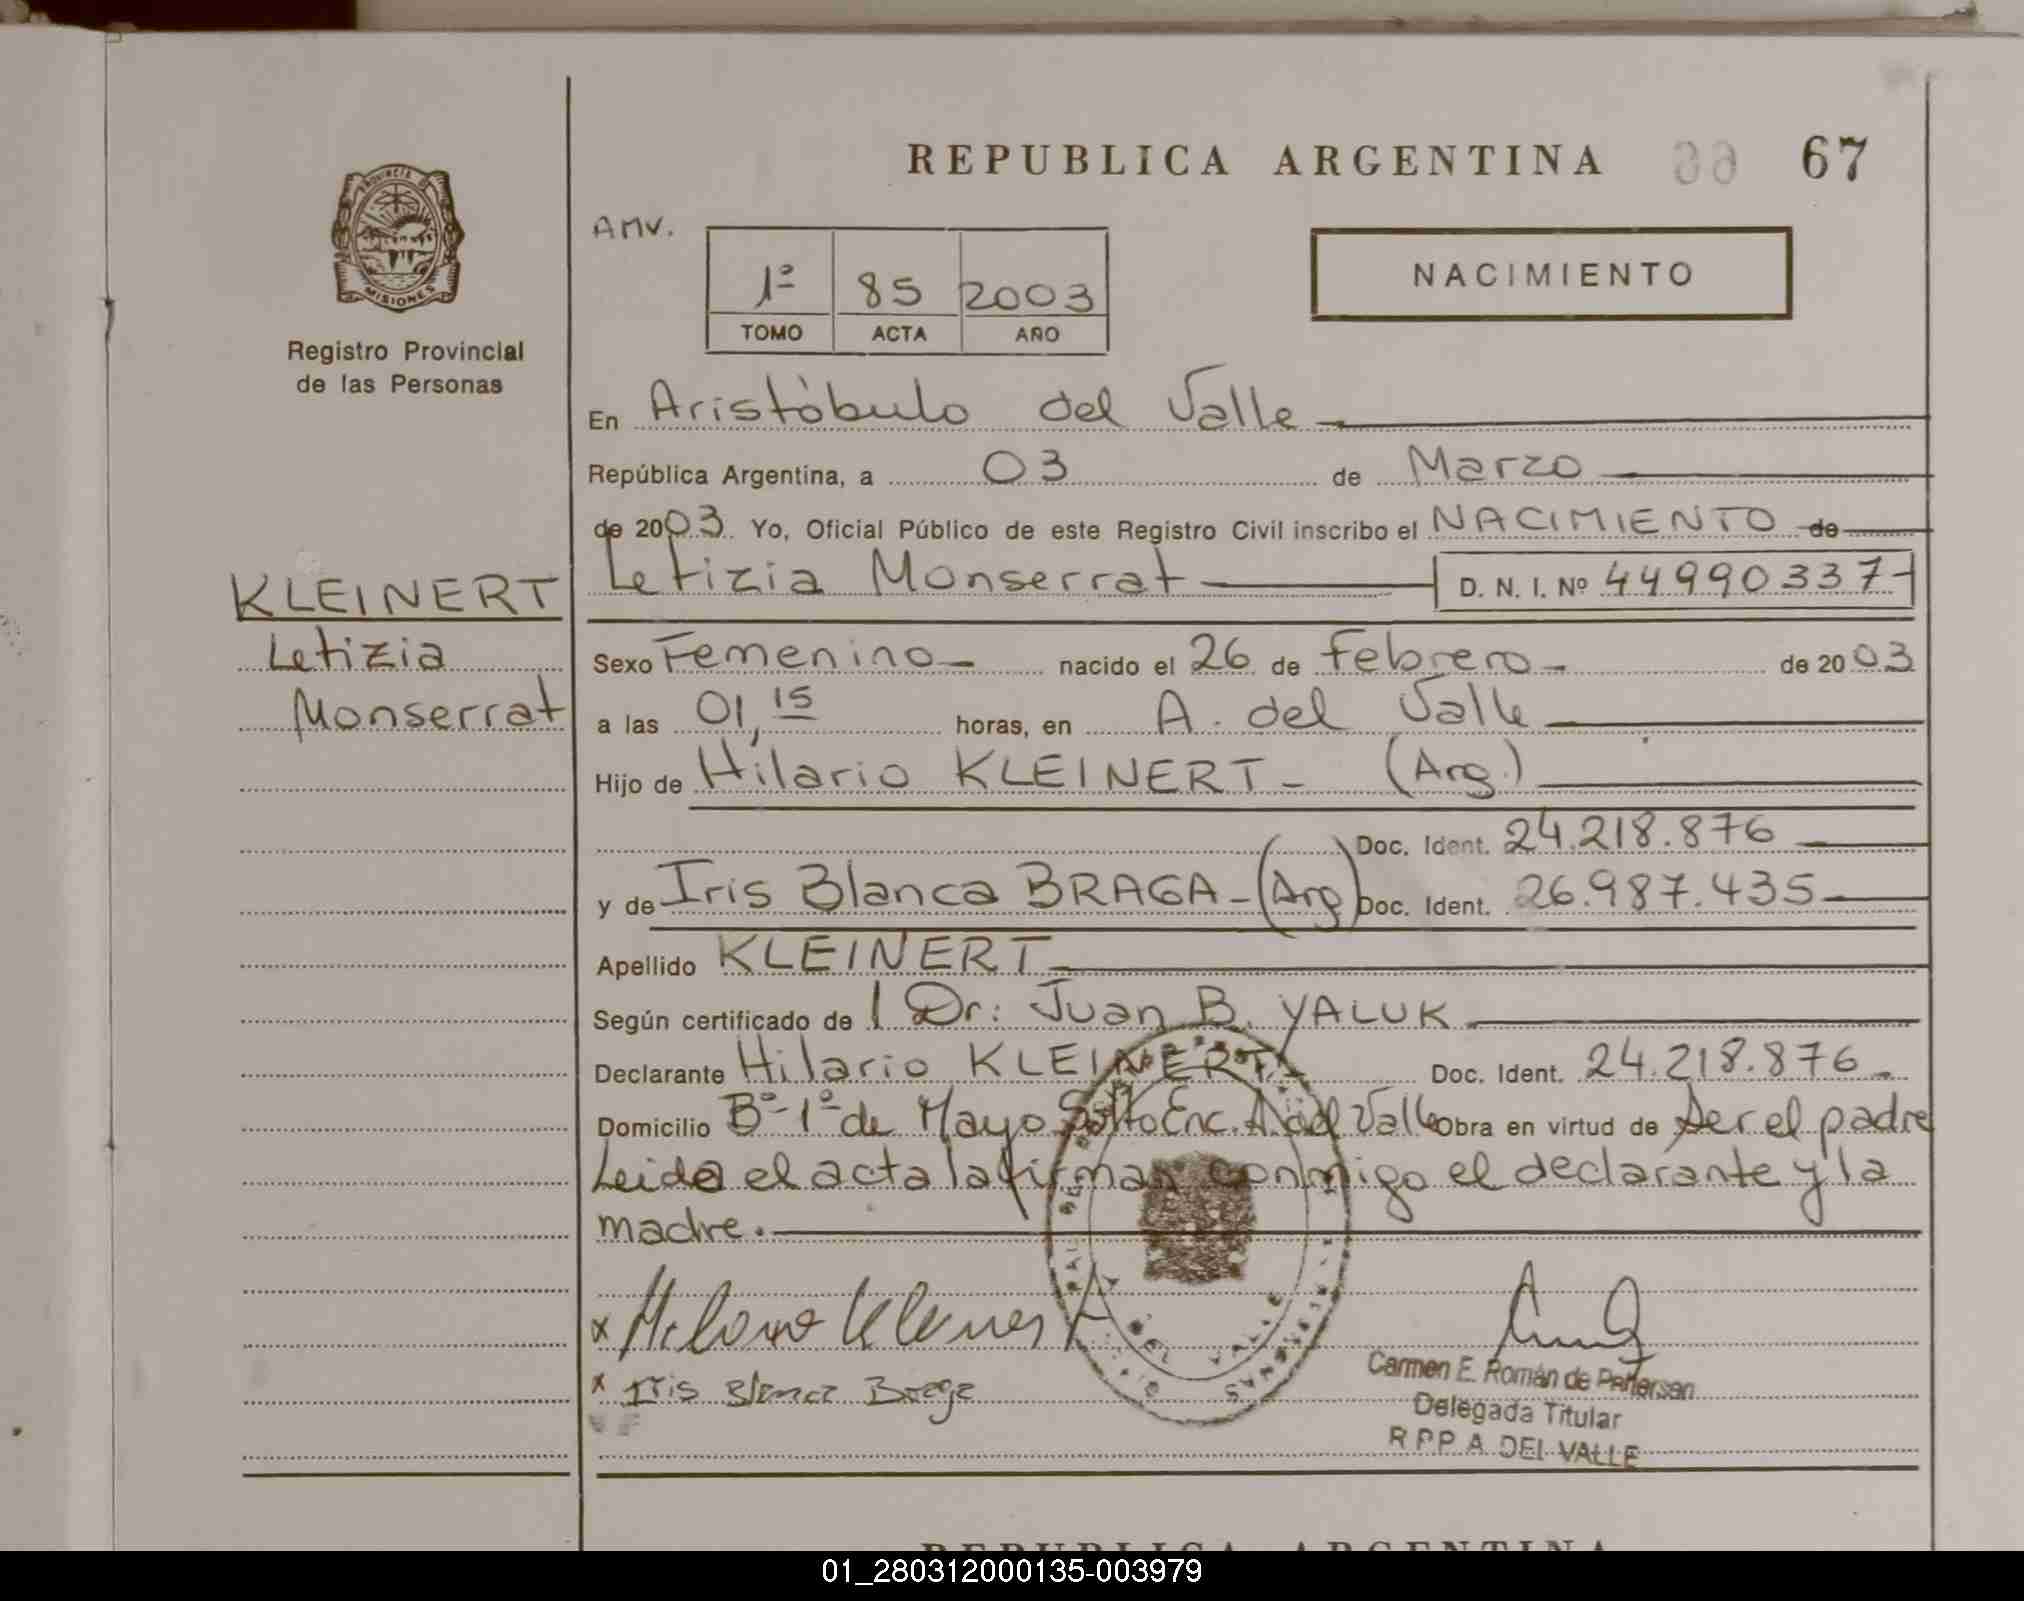 REPUBLICA ARGENTINA 66 67
PROVINCIA DE
MISIONES
Registro Provincial
de las Personas
AMV.
1º 85 2003
TOMO ACTA AÑO
NACIMIENTO
En Aristóbulo del Valle
República Argentina, a 03 de Marzo
de 2003. Yo, Oficial Público de este Registro Civil inscribo el NACIMIENTO de
Letizia Monserrat D. N. I. Nº 44990337
KLEINERT
Letizia
Monserrat
Sexo Femenino nacido el 26 de Febrero de 2003
a las 01,15 horas, en A. del Valle
Hijo de Hilario KLEINERT - (Arg.)
Doc. Ident. 24.218.876
y de Iris Blanca BRAGA - (Arg) Doc. Ident. 26.987.435
Apellido KLEINERT
Según certificado de / Dr: Juan B. YALUK
Declarante Hilario KLEINERT Doc. Ident. 24.218.876
Domicilio Bº-1º de Mayo Enc. A. del Valle Obra en virtud de ser el padre
Leida el acta la firman conmigo el declarante y la
madre.
x Hilario Kleinert
x Iris Blanca Braga
DEL VALLE
MISIONES
Carmen E. Román de Petterson
Delegada Titular
R P P A DEL VALLE
REPUBLICA ARGENTINA
01_280312000135-003979